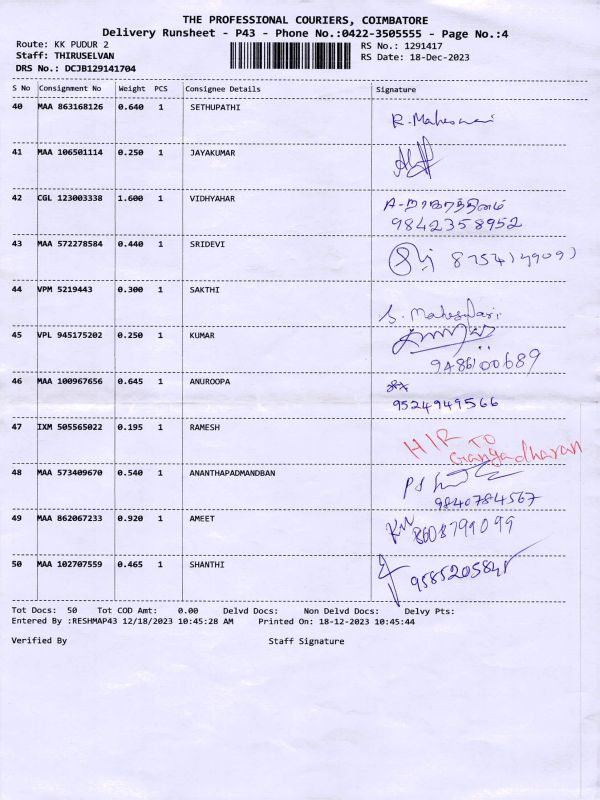 THE PROFESSIONAL COURIERS, COIMBATORE
Delivery Runsheet - P43 - Phone No.:0422-3505555 - Page No.:4
Route: KK PUDUR 2
Staff: THIRUSELVAN
DRS No.: DCJB129141704
RS No.: 1291417
RS Date: 18-Dec-2023
S No Consignment No Weight PCS Consignee Details Signature
40 MAA 863168126 0.640 1 SETHUPATHI R. Maheswari
41 MAA 106501114 0.250 1 JAYAKUMAR
42 CGL 123003338 1.600 1 VIDHYAHAR
9842358952
43 MAA 572278584 0.440 1 SRIDEVI
44 VPM 5219443 0.300 1 SAKTHI S. Maheswari
45 VPL 945175202 0.250 1 KUMAR
9486100689
46 MAA 100967656 0.645 1 ANUROOPA
9524949566
47 IXM 505565022 0.195 1 RAMESH H/R TO
Gangadharan
48 MAA 573409670 0.540 1 ANANTHAPADMANDBAN
9840784567
49 MAA 862067233 0.920 1 AMEET 8608799099
50 MAA 102707559 0.465 1 SHANTHI 9585205845
Tot Docs: 50 Tot COD Amt: 0.00 Delvd Docs: Non Delvd Docs: Delvy Pts:
Entered By :RESHMAP43 12/18/2023 10:45:28 AM Printed On: 18-12-2023 10:45:44
Verified By Staff Signature